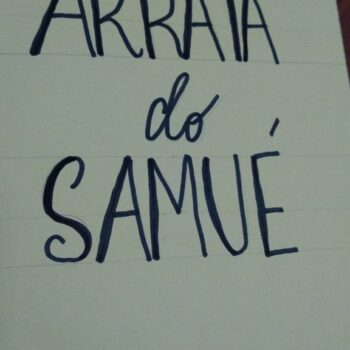 ARRAIA
do
SAMUÉ